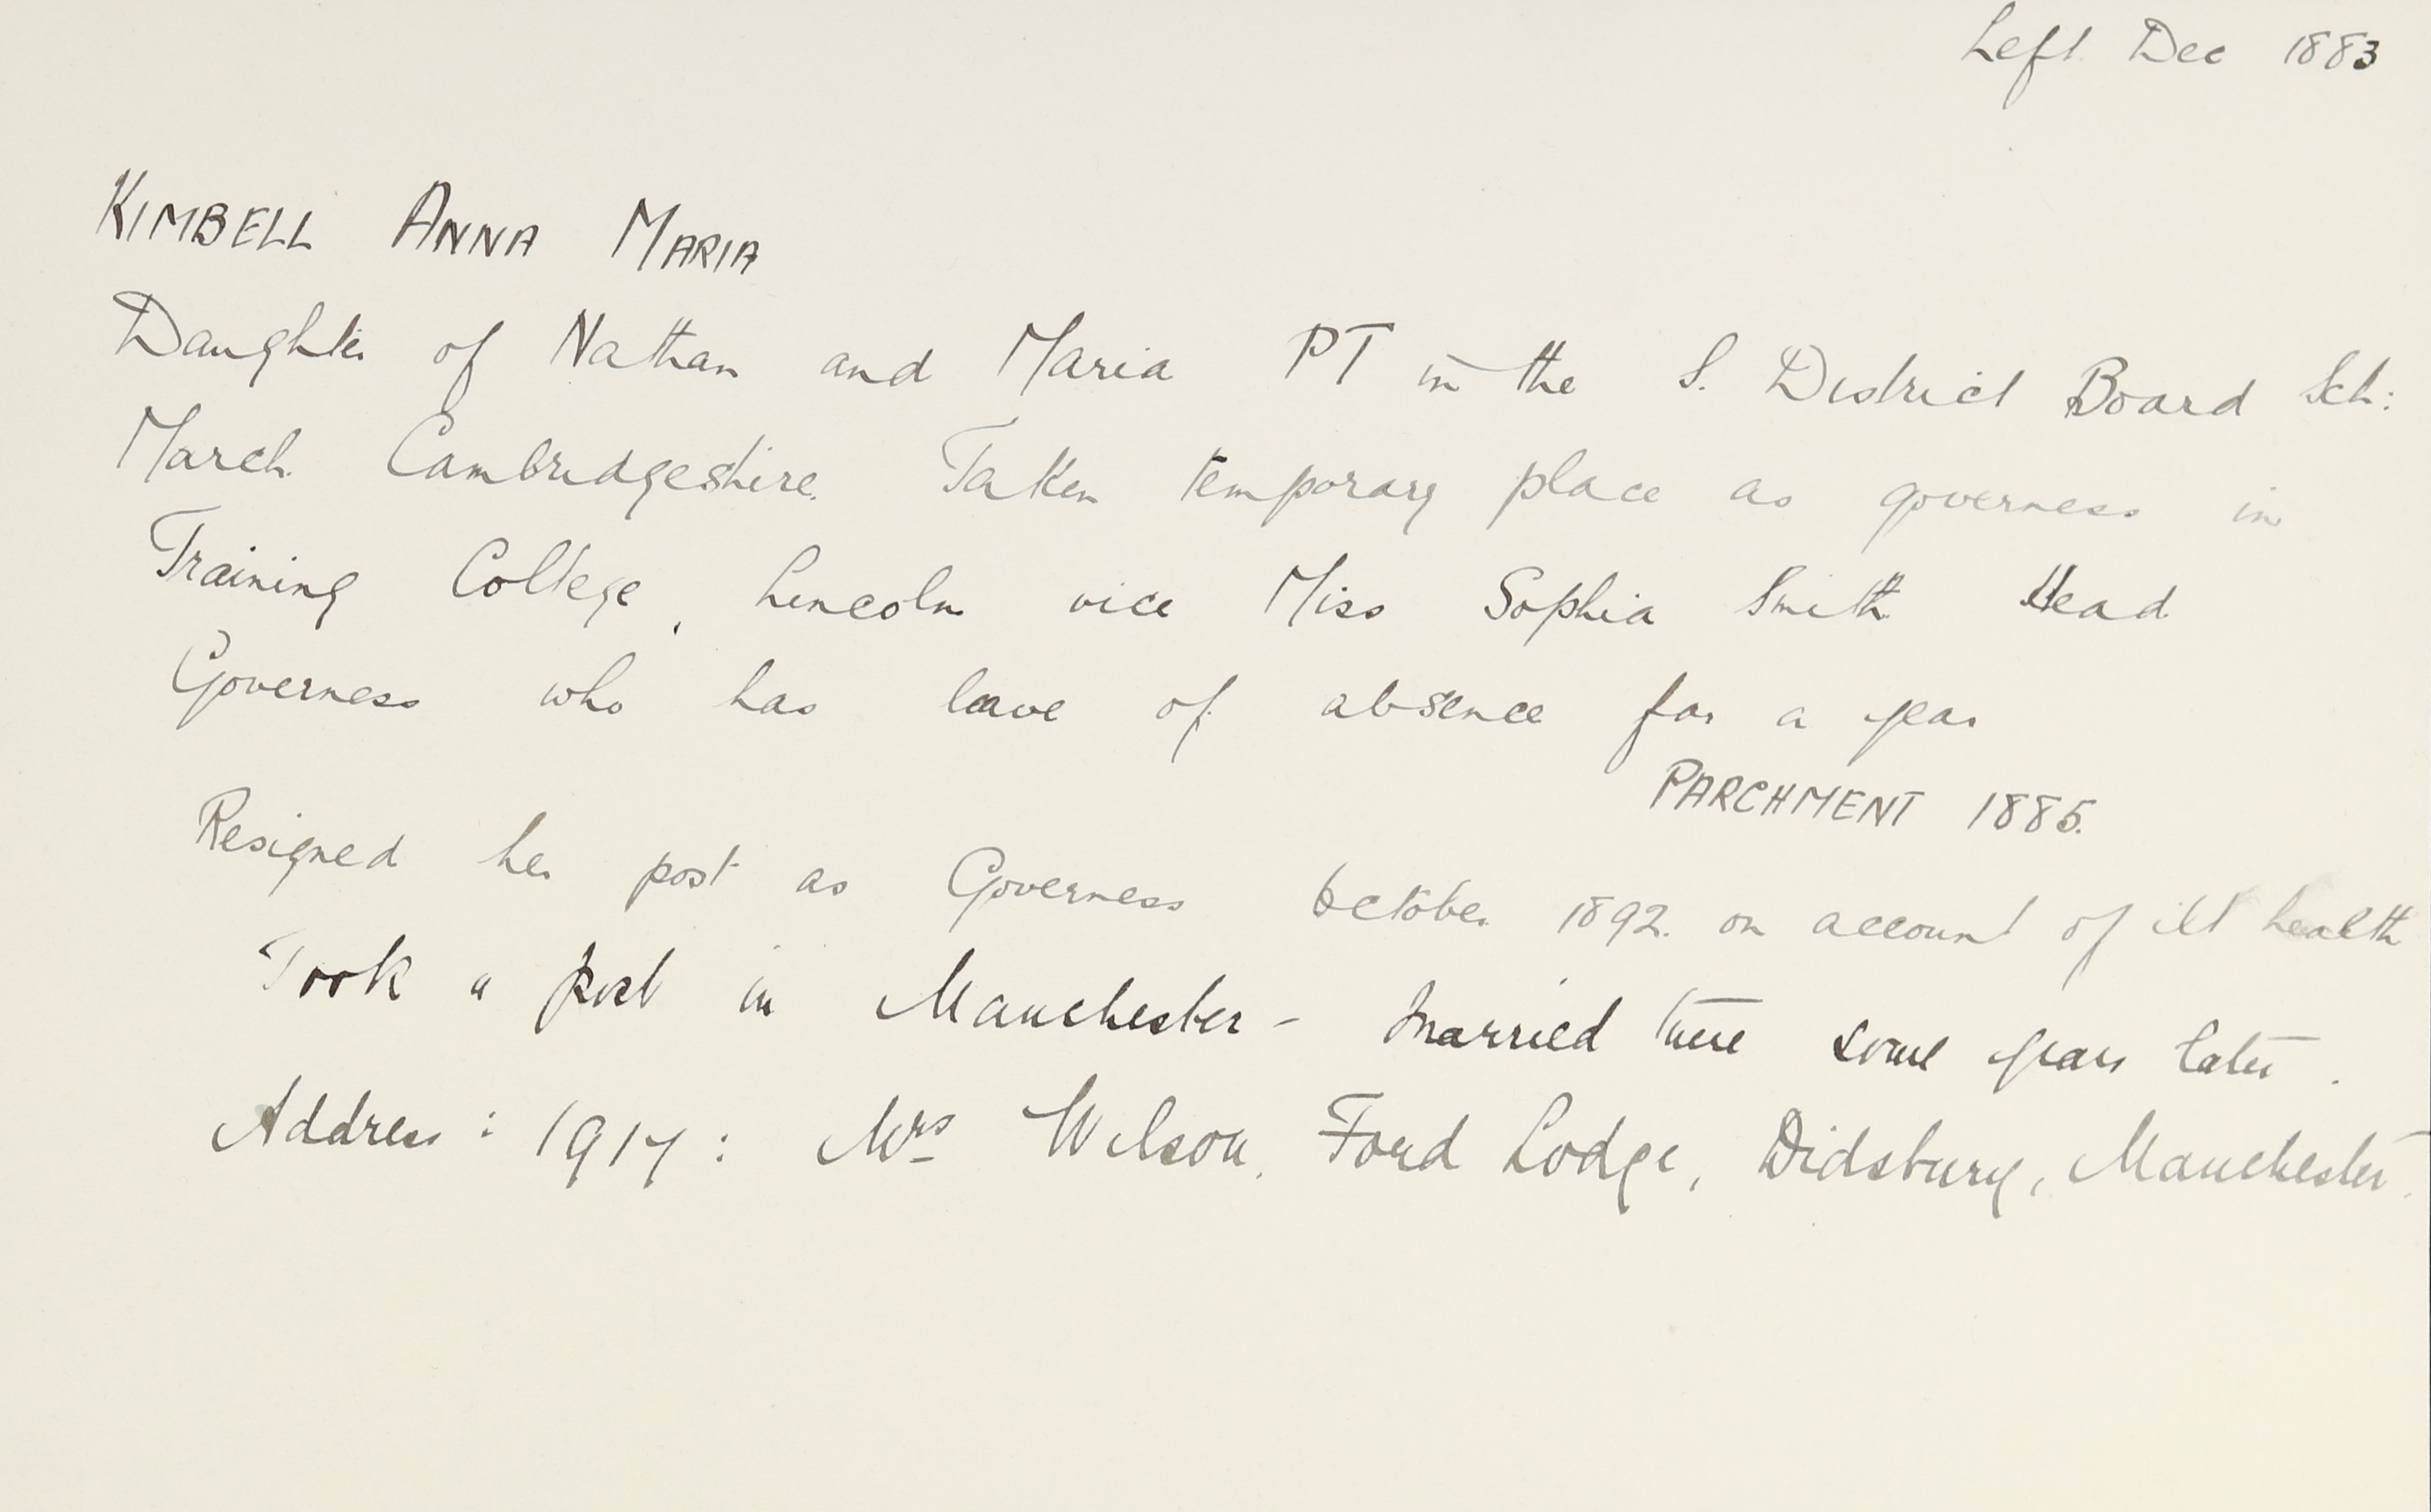 Left Dec 1883
KIMBELL ANNA MARIA
Daughter of Nathan and Maria PT in the S. District Board Sch:
March. Cambridgeshire. Taken temporary place as governess in
Training College, Lincoln vice Miss Sophia Smith Head
Governess who has leave of absence for a year
PARCHMENT 1885.
Resigned her post as Governess October 1892. on account of ill health
Took a post in Manchester - married there some years later.
Address: 1917: Mrs Wilson, Ford Lodge, Didsbury, Manchester.